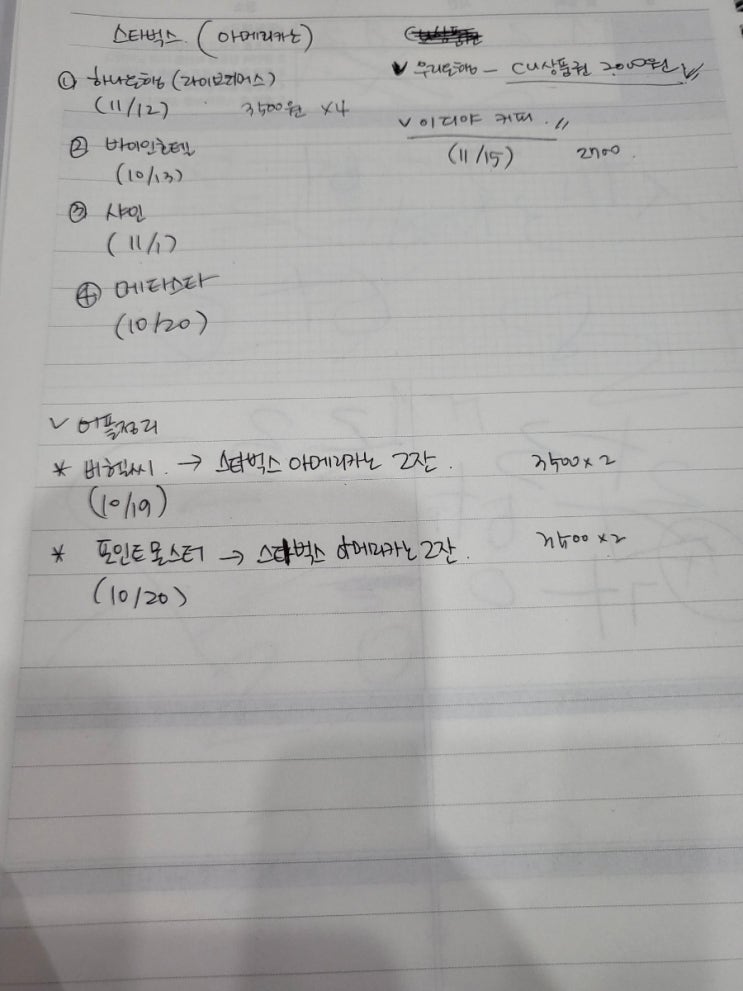 스타벅스. (아메리카노)
① 하나은행 (라이브피어스)
(11/12) 3500원 x4
② 바이인호텔
(10/13)
③ 샤인
(11/1)
④ 메타스타
(10/20)
✓ 우리은행 - CU상품권 2000원
✓ 이디야 커피.
(11/15) 2700.
✓ 어플정리
* 버핏씨. → 스타벅스 아메리카노 2잔. 3500 x 2
(10/19)
* 포인트몬스터 → 스타벅스 아메리카노 2잔. 3500 x2
(10/20)